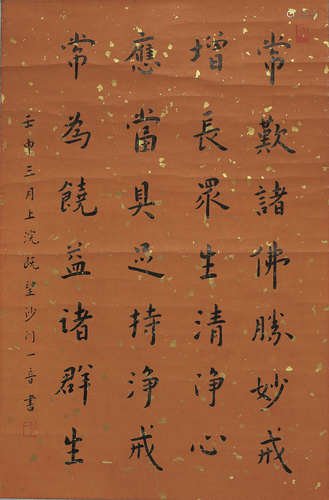 常歎諸佛勝妙戒
增長眾生清淨心
應當具足持淨戒
常為饒益諸群生
壬申三月上浣既望沙門一音書